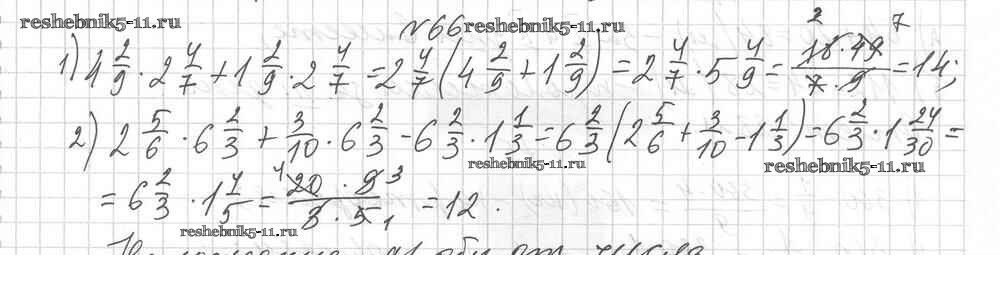 reshebnik5-11.ru №66 reshebnik5-11.ru
1) 4 2/9 · 2 4/7 + 1 2/9 · 2 4/7 = 2 4/7 (4 2/9 + 1 2/9) = 2 4/7 · 5 4/9 = (18 · 49)/(7 · 9) 2 7 = 14;
2) 2 5/6 · 6 2/3 + 3/10 · 6 2/3 - 6 2/3 · 1 1/3 = 6 2/3 (2 5/6 + 3/10 - 1 1/3) = 6 2/3 · 1 24/30 =
reshebnik5-11.ru reshebnik5-11.ru
= 6 2/3 · 1 4/5 = 4 (20 · 9 3)/(3 · 5 1) = 12.
reshebnik5-11.ru